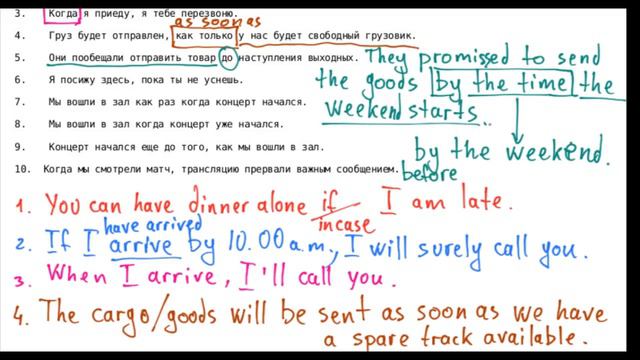 3. Когда я приеду, я тебе перезвоню.
as soon as
4. Груз будет отправлен, как только у нас будет свободный грузовик.
5. Они пообещали отправить товар до наступления выходных.
They promised to send
the goods by the time the
weekend starts..
6. Я посижу здесь, пока ты не уснешь.
7. Мы вошли в зал как раз когда концерт начался.
8. Мы вошли в зал когда концерт уже начался.
9. Концерт начался еще до того, как мы вошли в зал.
by the weekend.
before
10. Когда мы смотрели матч, трансляцию прервали важным сообщением.
1. You can have dinner alone if I am late.
incase
have arrived
2. If I arrive by 10.00 a.m., I will surely call you.
3. When I arrive, I'll call you.
4. The cargo/goods will be sent as soon as we have
a spare track available.